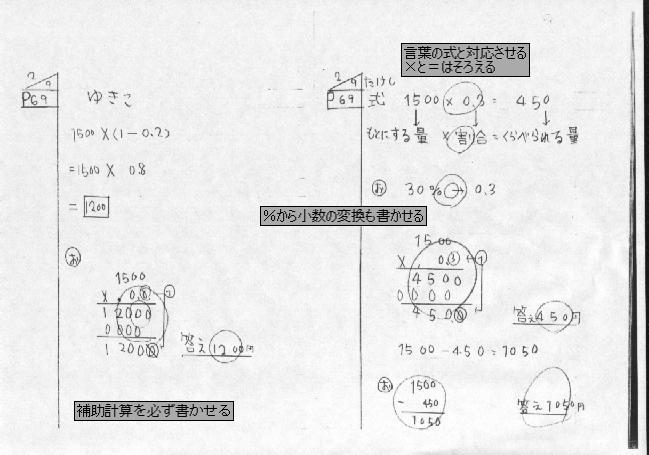 2/9
P69
ゆきこ
1500×(1-0.2)
=1500×0.8
=1200
お
1500
× 0.8
12000
0000
12000
答え1200円
補助計算を必ず書かせる
言葉の式と対応させる
×と=はそろえる
2/9
P69
たけし
式 1500×0.3=450
↓ ↓ ↓
もとにする量×割合=くらべられる量
お 30%→0.3
%から小数の変換も書かせる
1500
× 0.3 ←1
4500
0000
4500
答え450円
1500-450=1050
お
1500
- 450
1050
答え1050円